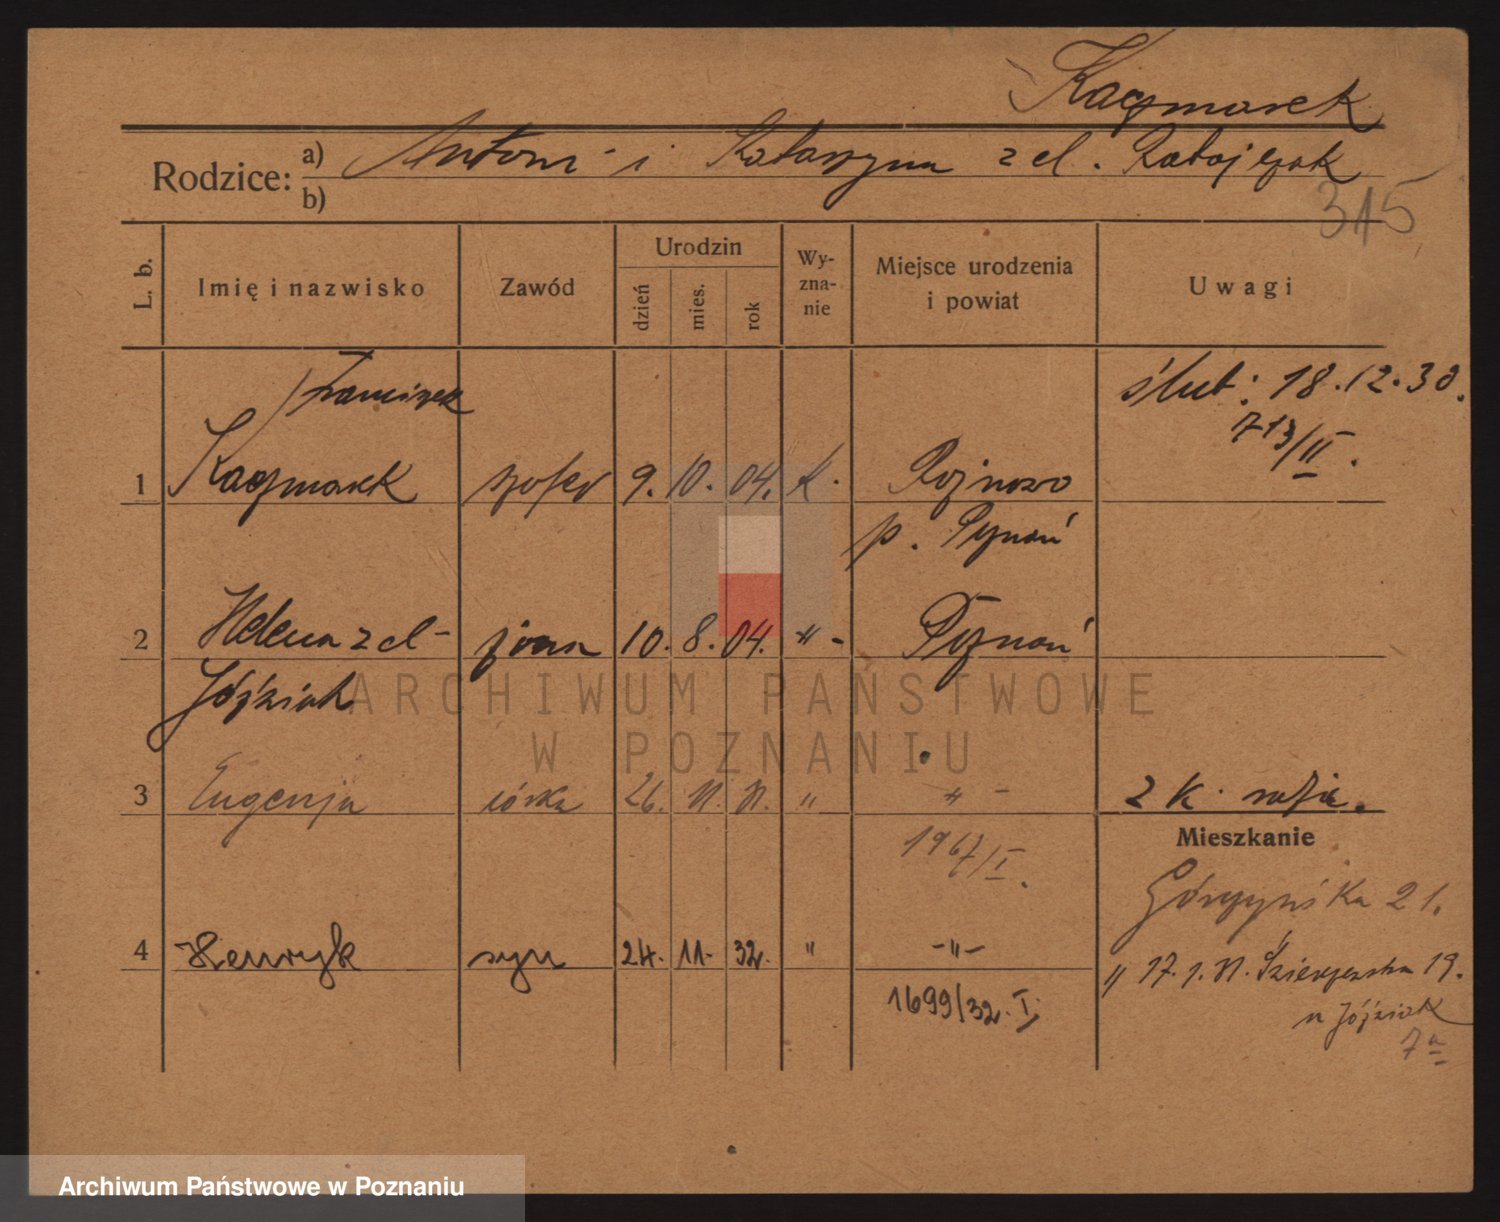 Kaczmarek
Rodzice: a) Antoni i Katarzyna z d. Ratajczak
b)
315
L. b. Imię i nazwisko Zawód Urodzin dzień mies. rok Wyznanie Miejsce urodzenia i powiat Uwagi
Franciszek ślub: 18.12.30.
713/II.
1 Kaczmarek szofer 9. 10. 04. k.
p. Poznań
2 Helena z d- żona 10. 8. 04. -"- Poznań
Jóźziak
3 Eugenja córka 26. " -"- 2 k.
Mieszkanie
1967/I.
Górczyńska 21.
4 Henryk syn 24. 11. 32. " -"-
" 17. 19.
1699/32. I.
7a
ARCHIWUM PAŃSTWOWE
W POZNANIU
Archiwum Państwowe w Poznaniu